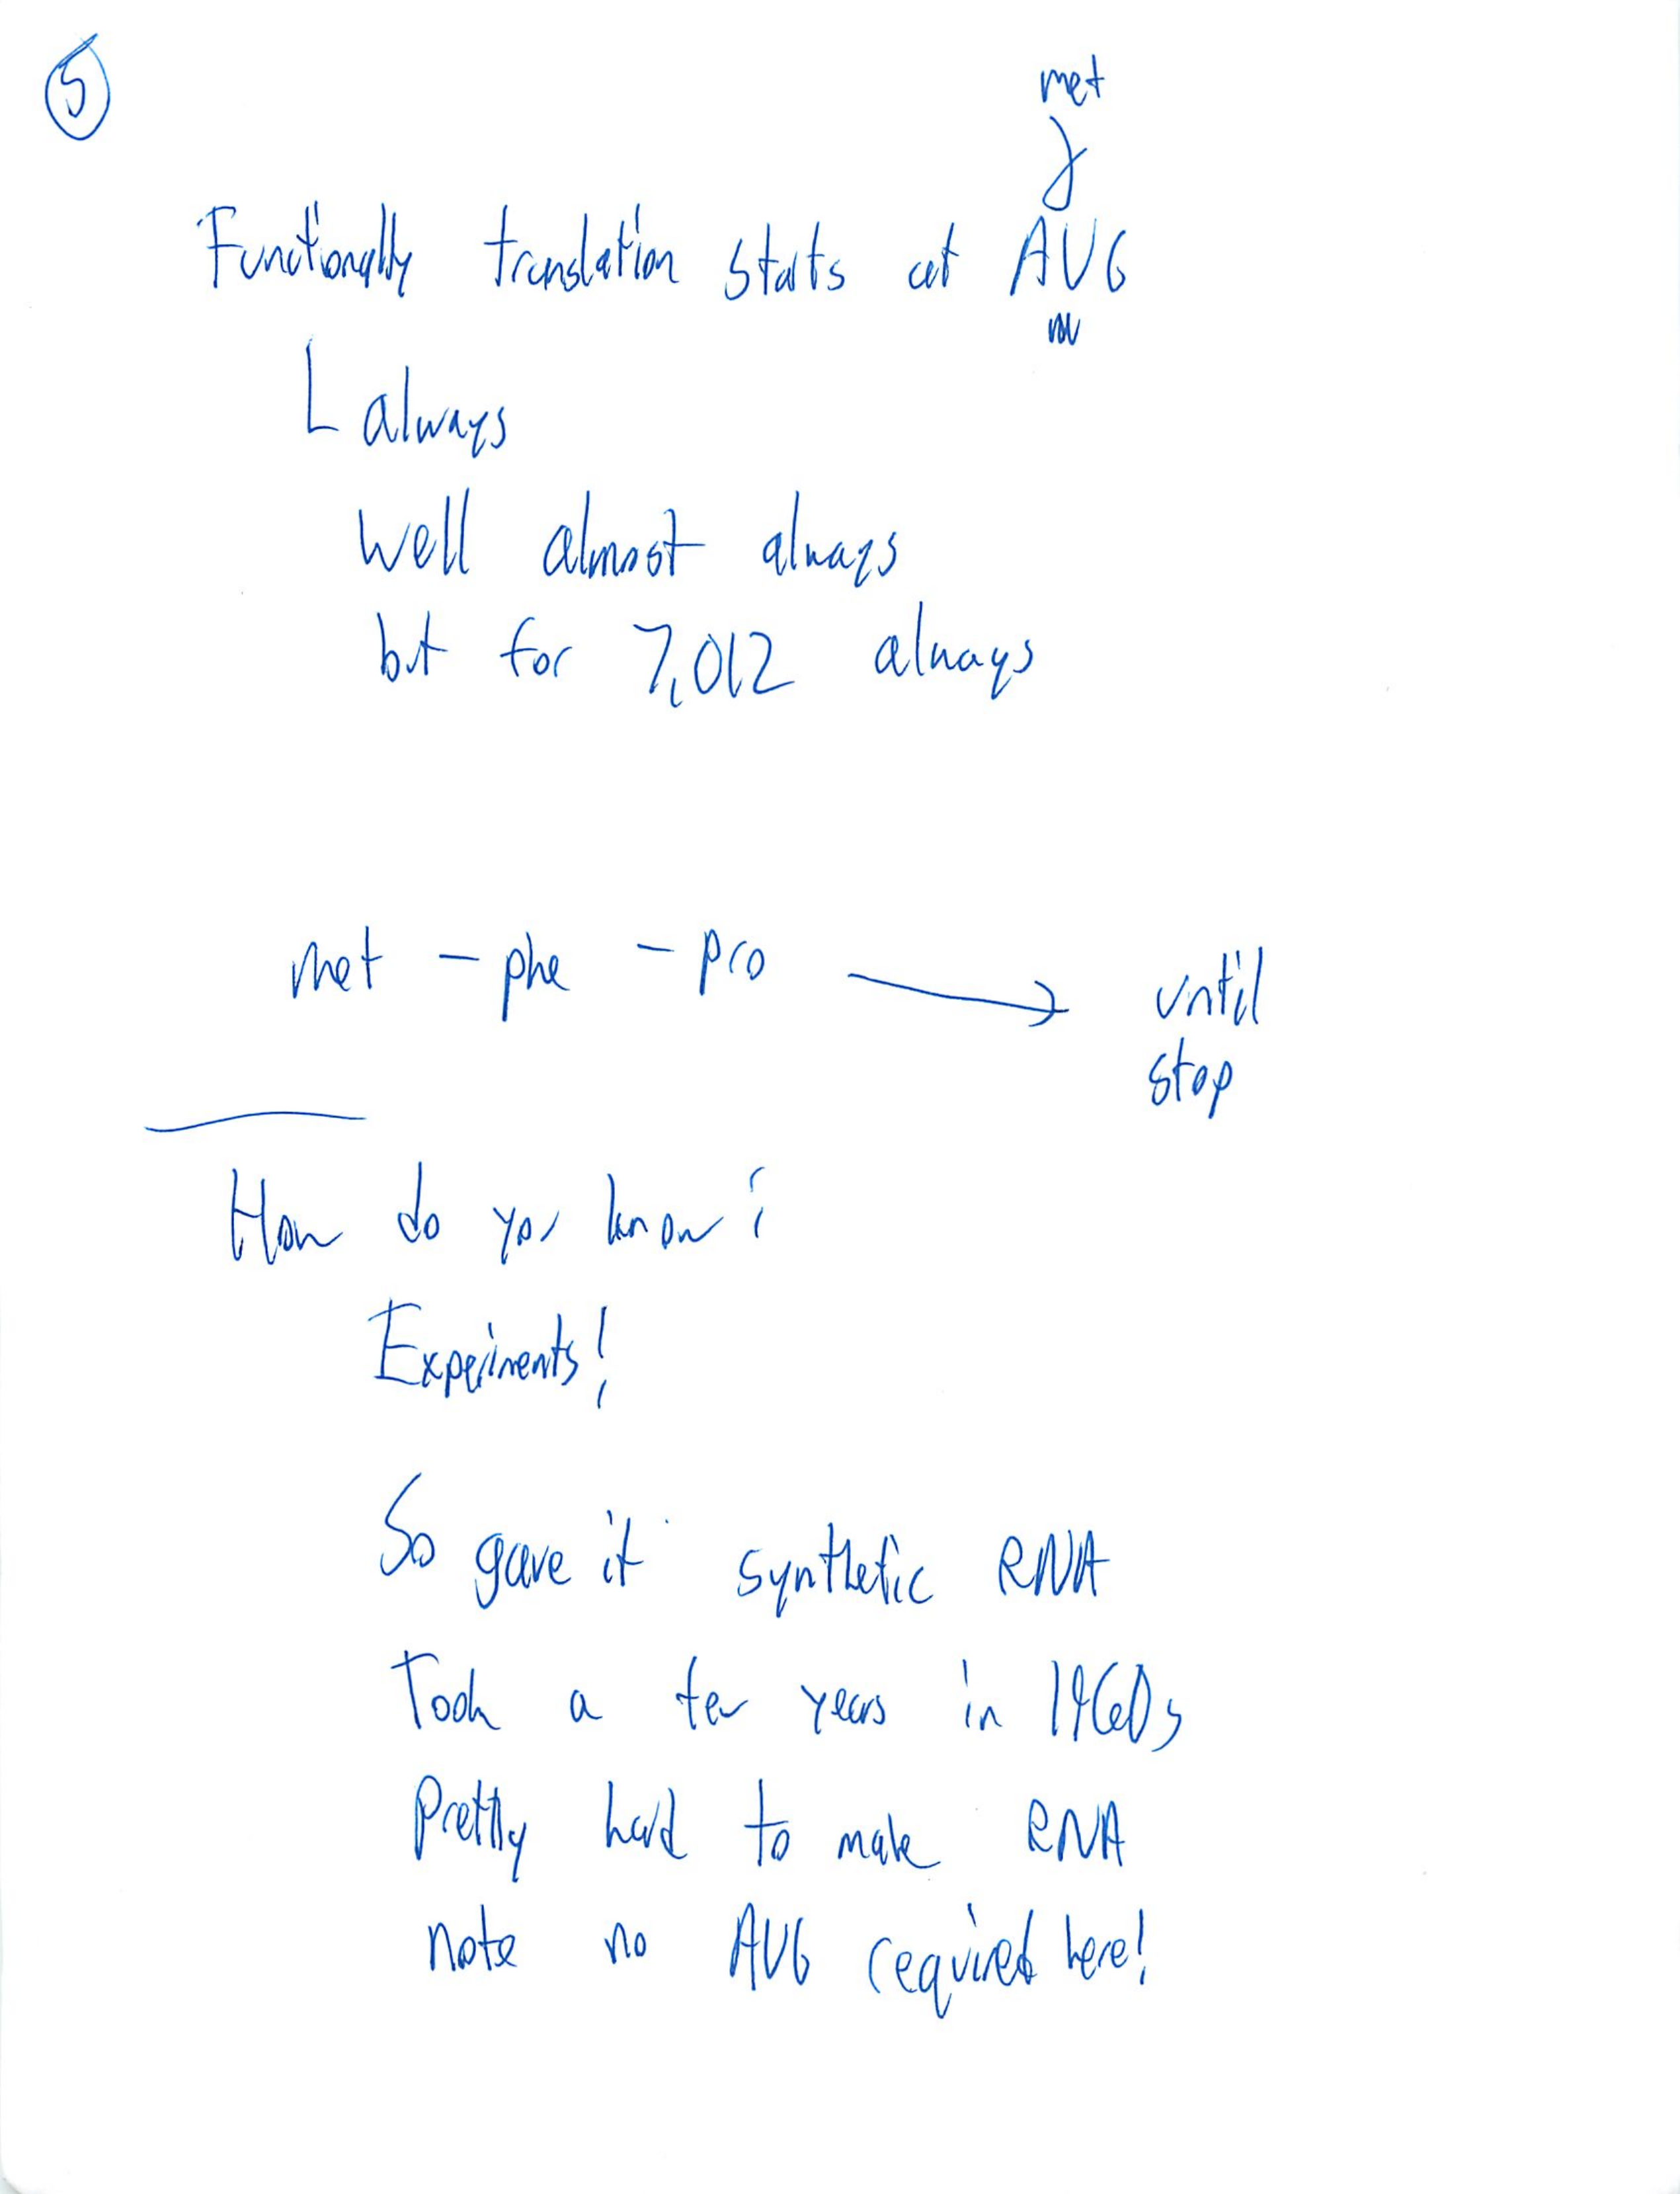 5
met
Functionally translation starts at AUG
always
well almost always
but for 7.012 always
met - phe - pro → until
stop
How do you know?
Experiments!
So gave it synthetic RNA
Took a few years in 1960s
Pretty hard to make RNA
note no AUG required here!